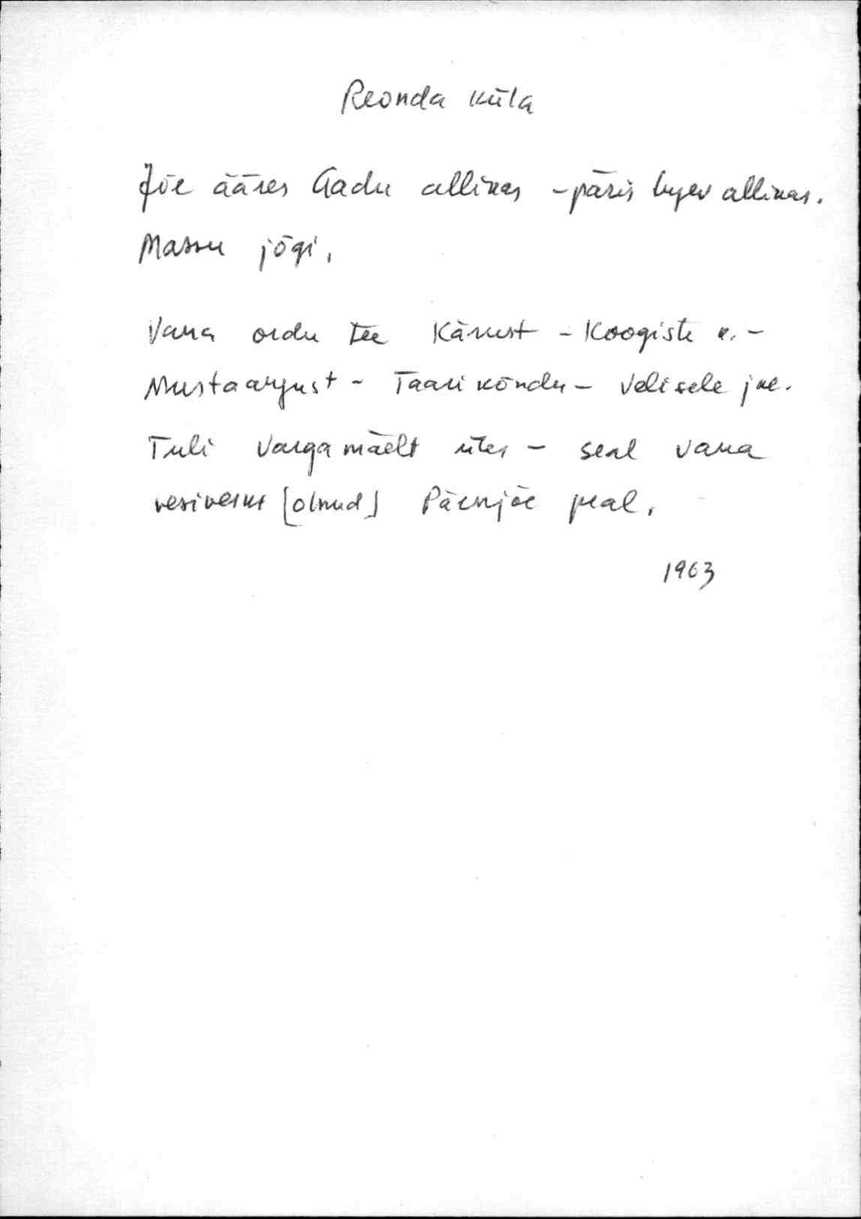 Reonda küla
Jõe ääres Aadu allikas - päris hyev allikas.
Massu jõgi.
Vana ordu tee Kärust - Koogiste k. -
Mustaarjust - Taarikõndu - Velisele jne.
Tuli Vargamäelt üles - seal vana
vesiveski [olnud] Pärnjõe peal.
1963